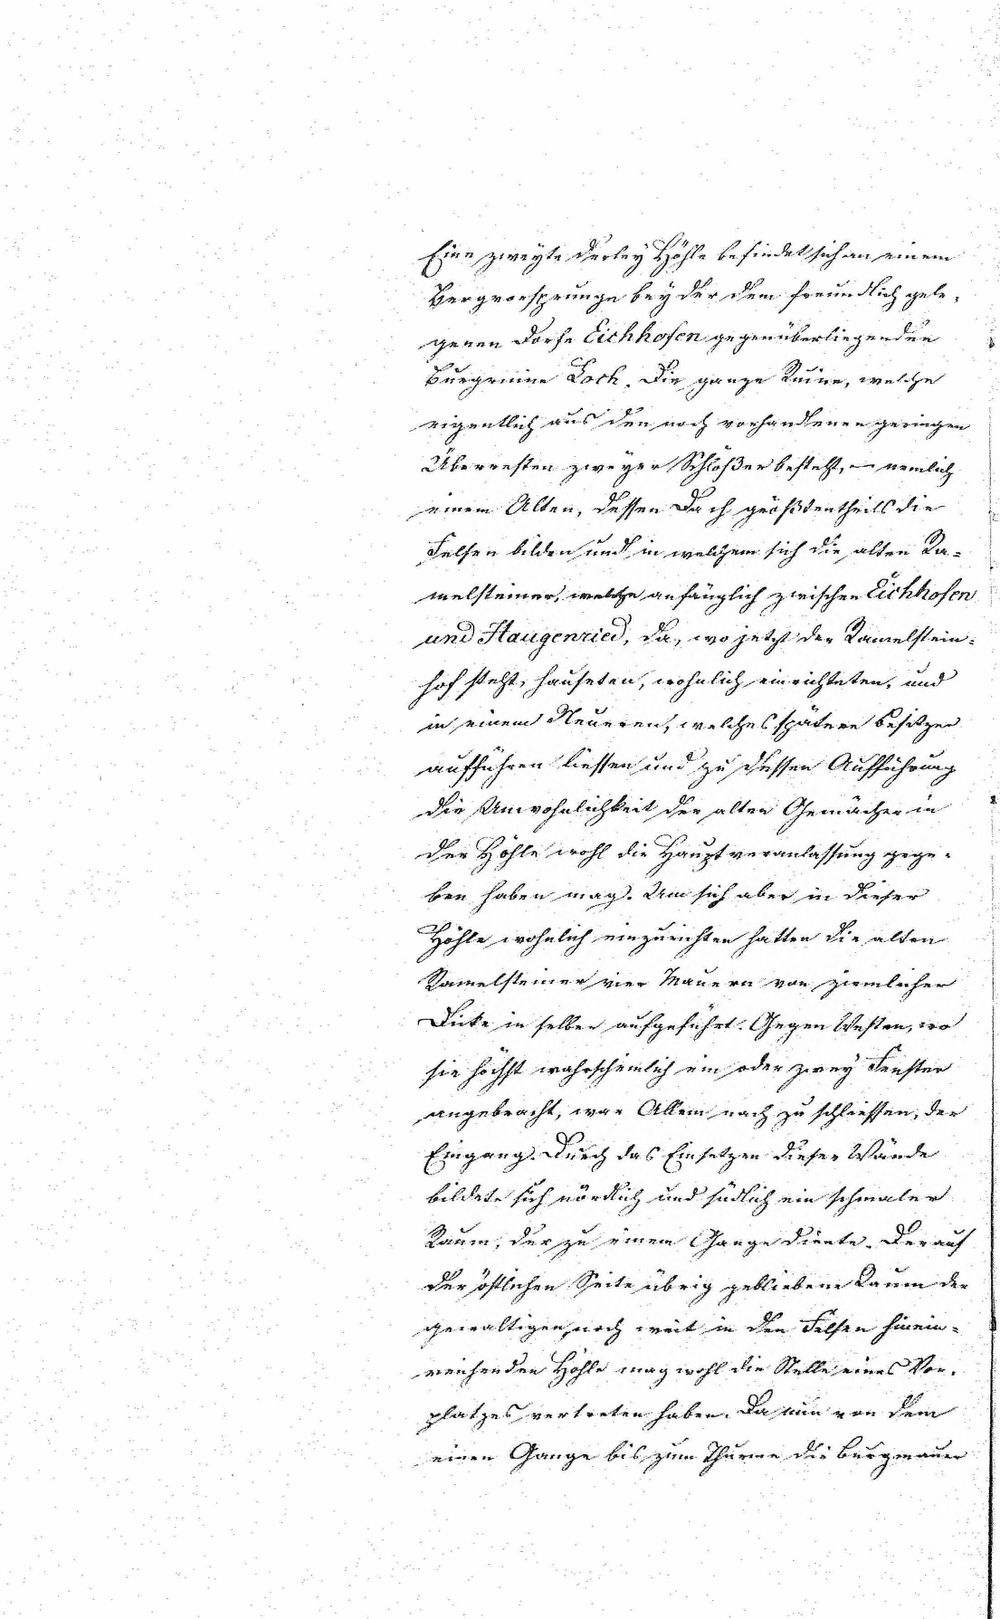 Eine zweyte derley Höhle befindet sich an einem
Bergvorsprunge bey der dem freundlich gele-
genen Dorfe Eichhofen gegenüberliegenden
Burgruine Loch. Die ganze Ruine, welche
eigentlich aus den noch vorhandenen geringen
Überresten zweyer Schlößer besteht, – nemlich
einem Alten, dessen Dach größtentheils die
Felsen bilden und in welchem sich die alten Ra-
melsteiner, welche anfänglich zwischen Eichhofen
und Haugenried, da, wo jetzt der Ramelstein-
hof steht, hauseten, wohnlich einrichteten, und
in einem Neueren, welches spätere Besitzer
aufführen liessen und zu dessen Aufführung
die Unwohnlichkeit der alten Gemächer in
der Höhle wohl die Hauptveranlassung gege-
ben haben mag. Um sich aber in dieser
Höhle wohnlich einzurichten hatten die alten
Ramelsteiner vier Mauern von ziemlicher
Dicke in selber aufgeführt. Gegen Westen, wo
sie höchst wahrscheinlich ein oder zwey Fenster
angebracht, war Allem nach zu schliessen, der
Eingang. Durch das Einsetzen dieser Wände
bildete sich nördlich und südlich ein schmaler
Raum, der zu einem Gange diente. Der auf
der östlichen Seite übrig gebliebene Raum der
gewaltigen, noch weit in den Felsen hinein-
reichenden Höhle mag wohl die Stelle eines Vor-
platzes vertreten haben. Da nun von dem
einen Gange bis zum Thurme die Burgmauer